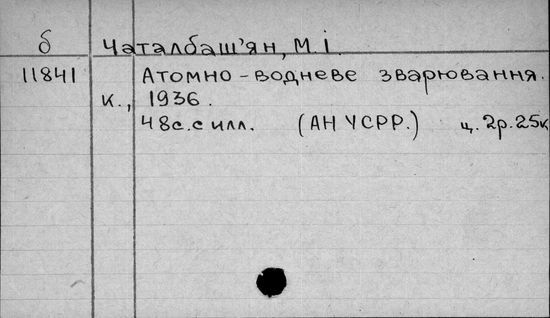 б Чаталбаш'ян, М.І.
11841 Атомно-водневе зварювання.
К., 1936.
48с. с илл. (АН УСРР.) ц. 2р. 25к